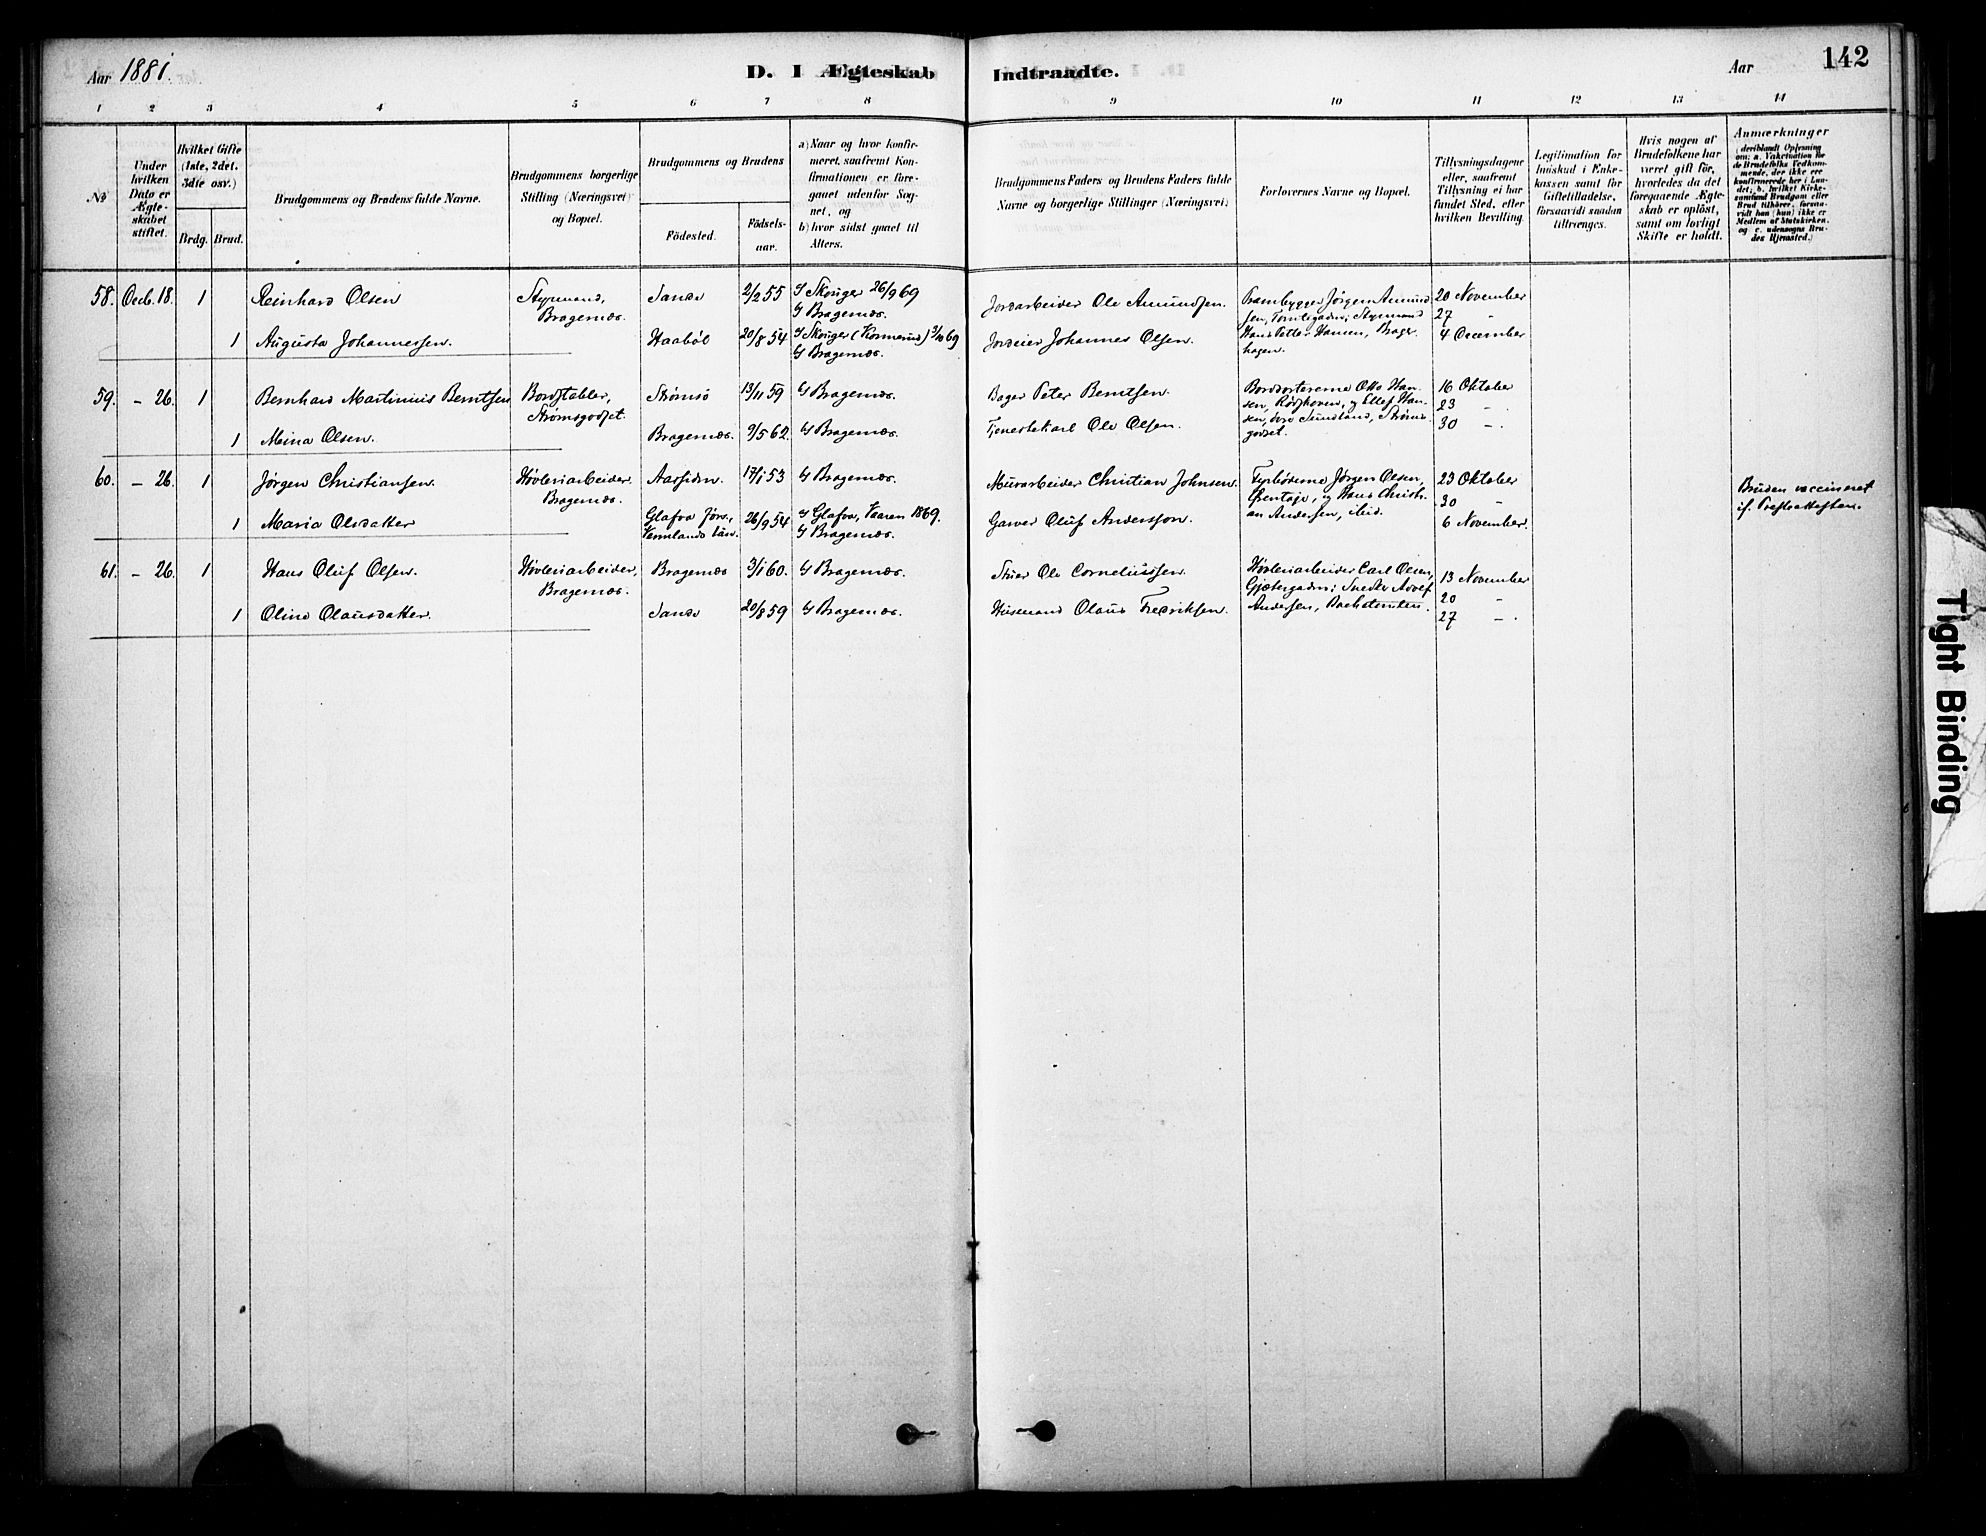 Aar 1881.
D. I Ægteskab
Indtraadte.
Aar
142
1 2 3 4 5 6 7 8
9 10 11 12 13 14
No
Under hvilken Dato er Ægteskabet stiftet.
Hvilket Gifte (1ste, 2det, 3die osv.)
Brdg. Brud.
Brudgommens og Brudens fulde Navne.
Brudgommens borgerlige Stilling (Næringsvei) og Bopæl.
Brudgommens og Brudens
Födested.
Födsels-aar.
a) Naar og hvor konfirmeret, saafremt Konfirmationen er foregaaet udenfor Sognet, og
b) hvor sidst gaaet til Alters.
Brudgommens Faders og Brudens Faders fulde Navne og borgerlige Stillinger (Næringsvei)
Forlovernes Navne og Bopæl.
Tillysningsdagene eller, saafremt Tillysning ei har fundet Sted, efter hvilken Bevilling.
Legitimation for Indskud i Enkekassen samt for Giftetilladelse, forsaavidt saadan tiltrænges.
Hvis nogen af Brudefolkene har været gift för, hvorledes da det foregaaende Ægteskab er oplöst, samt om lovligt Skifte er holdt.
Anmærkninger
(deriblandt Oplysning om: a. Vakcination for de Brudefolks Vedkommende, der ikke ere konfirmerede her i Landet; b. hvilket Kirkesamfund Brudgom eller Brud tilhörer, forsaavidt han (hun) ikke er Medlem af Statskirken, og c. udensogns Brudes Hjemsted.)
58. Decb. 18. 1 Reinhard Olsen
Styrmand, Bragernæs.
Sande 2/2 55
I Skouger 26/9 69
I Bragernæs.
Jordarbeider Ole Amundsen.
Prambygger Jørgen Amundsen, Tomtegaden; Styrmand Hans Petter Hansen, Bragerhagen.
20 November
27 "
4 December
1 Augusta Johannessen.
Haabøl 20/8 54
I Skouger (Konnerud) 3/10 69
I Bragernæs.
Jordeier Johannes Olsen.
59. - 26. 1 Bernhard Martinius Berntsen
Bordstabler, Strømsgodset.
Strømsø 13/11 59
I Bragernæs.
Bager Peter Berntsen.
Bordsortererne Otto Hansen, Rødskoven, og Ellef Hansen, Sundland, Strømsgodset.
16 Oktober
23 -.
30 -.
1 Mina Olsen.
Bragernæs. 9/5 62.
I Bragernæs.
Tjenestekarl Ole Olsen.
60. - 26. 1 Jørgen Christiansen.
Høvleriarbeider, Bragernæs.
Aassiden. 17/1 53
I Bragernæs.
Murarbeider Christian Johnsen.
Fyrbøderne Jørgen Olsen, og Hans Christian Andersen, ibid.
23 Oktober
30 "
6 November.
Bruden vaccineret if. Presteattesten.
1 Maria Olsdatter
Glafva Jøss., Vermlands Län. 26/9 54
I Glafva, Vaaren 1869.
I Bragernæs.
Garver Oluf Andersson.
61. - 26. 1 Hans Oluf Olsen.
Høvleriarbeider, Bragernæs.
Bragernæs 3/1 60.
I Bragernæs.
Stuer Ole Corneliussen.
Høvleriarbeider Carl Olsen, Gjætergaden; Snedker Adolf Andersen,
13 November
20 -
27 -.
1 Oline Olausdatter.
Sande 20/8 59
I Bragernæs.
Husmand Olaus Fredriksen.
Tight Binding